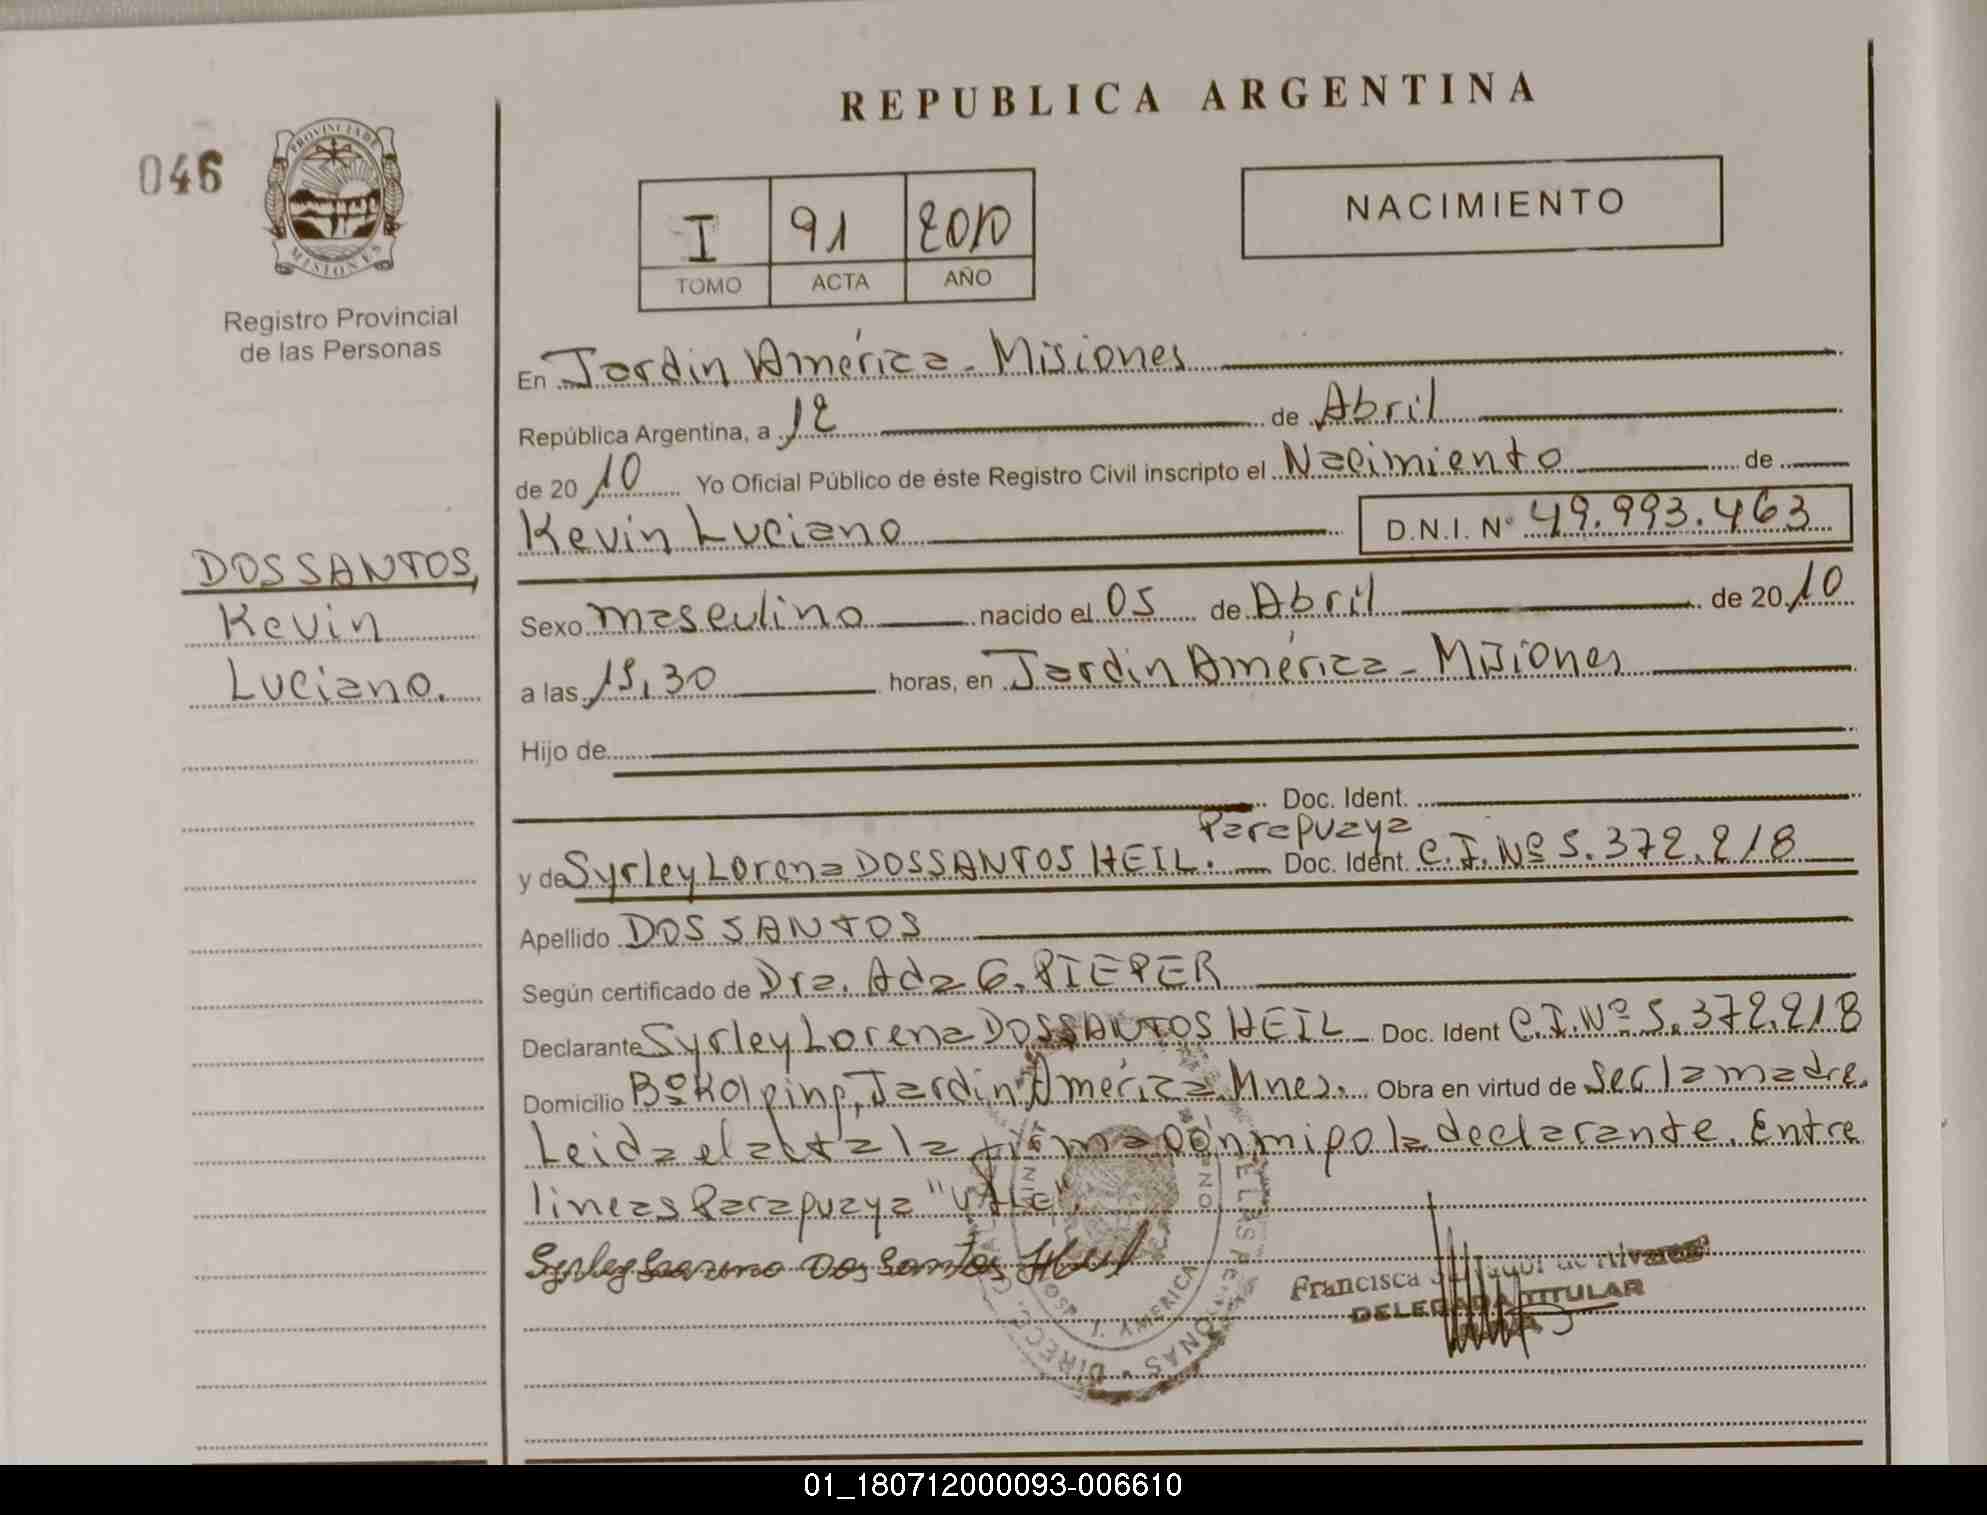 REPUBLICA ARGENTINA
046
PROVINCIA DE
MISIONES
Registro Provincial
de las Personas
I 91 2010
TOMO ACTA AÑO
NACIMIENTO
En Jardin América - Misiones
República Argentina, a 12 de Abril
de 2010 Yo Oficial Público de éste Registro Civil inscripto el Nacimiento de
Kevin Luciano D.N.I. Nº 49.993.463
DOS SANTOS,
Kevin
Luciano.
Sexo masculino nacido el 05 de Abril de 2010
a las 15,30 horas, en Jardin América - Misiones
Hijo de
Doc. Ident.
Paraguaya
y de Syrley Lorena DOS SANTOS HEIL. Doc. Ident. C.I. Nº 5.372.218
Apellido DOS SANTOS
Según certificado de Dra. Ada G. PIEPER
Declarante Syrley Lorena DOS SANTOS HEIL Doc. Ident C.I. Nº 5.372.218
Domicilio Bº Kolping, Jardin América Mnes. Obra en virtud de ser la madre.
Leida el acta la firma con migo la declarante. Entre
lineas Paraguaya "VALE".
Dos Santos
Francisca de Alvarez
DELEGADA TITULAR
01_180712000093-006610